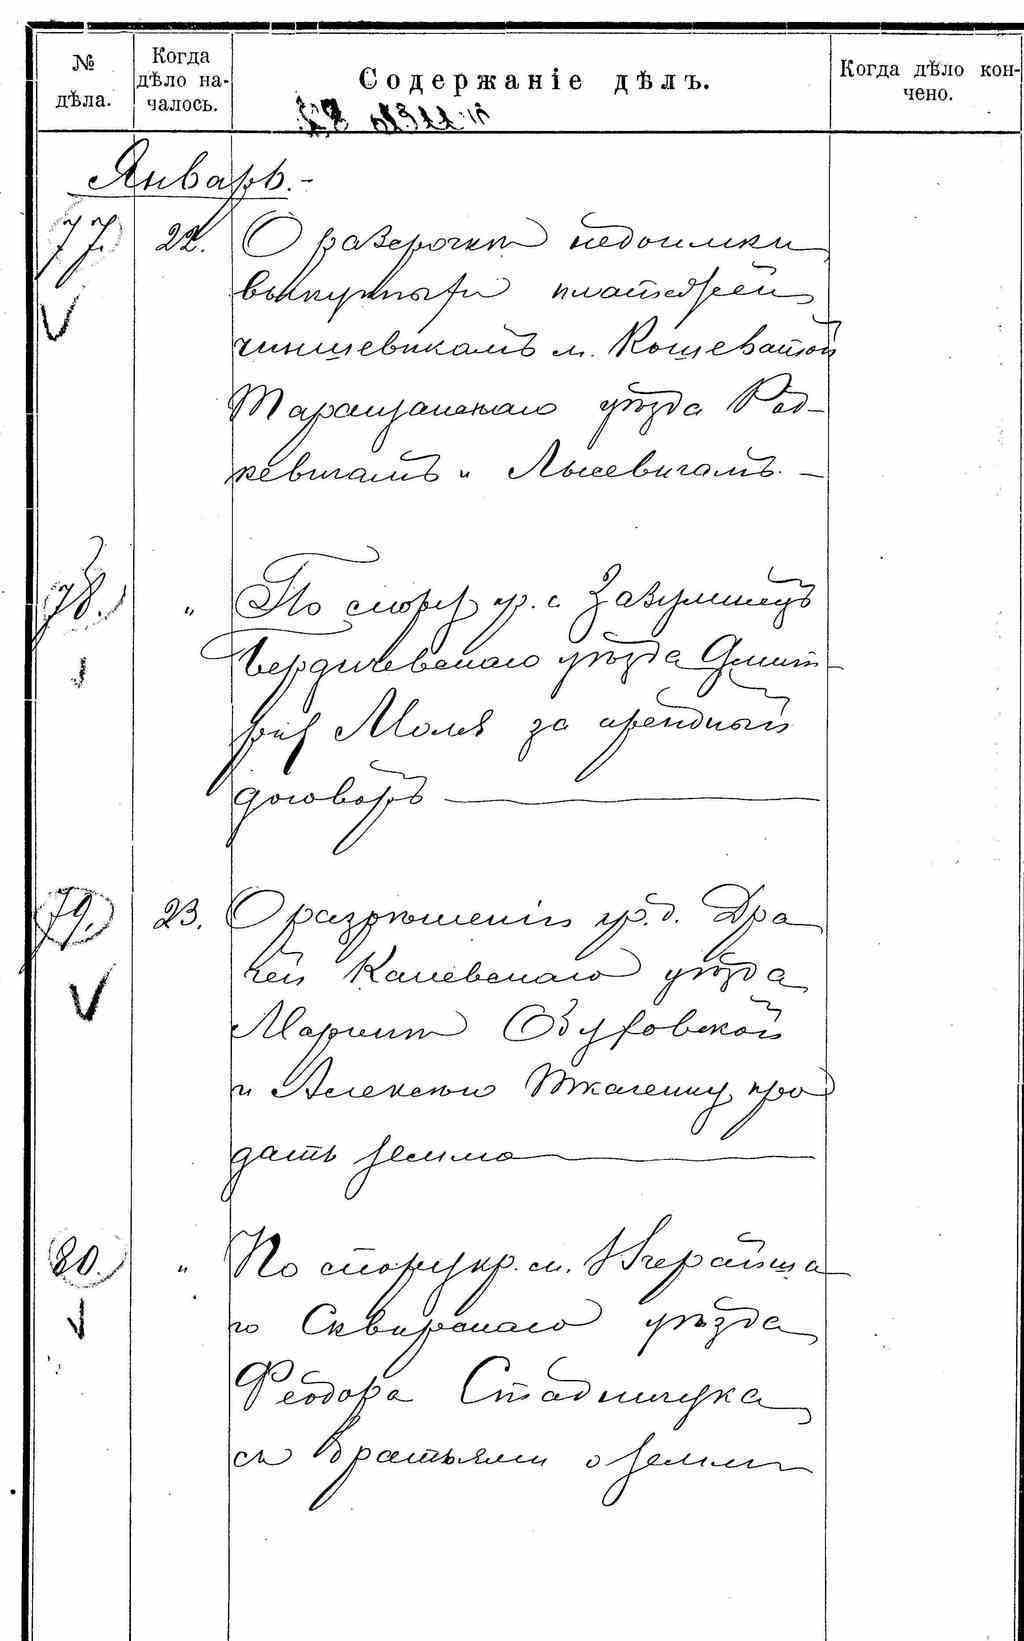 № дѣла.
Когда дѣло на-
чалось.
Содержаніе дѣлъ.
Когда дѣло кон-
чено.
Январь.-
77. 22. О разсрочкѣ недоимки
выкупныхъ платежей
чиншевикамъ м. Кошеватой
Таращанскаго уѣзда Рад-
кевичамъ и Лысевичамъ. -
78. " По спору кр. с. Зазулинецъ
Бердичевскаго уѣзда Дмит-
рія Моля за арендный
договоръ
79. 23. О разрѣшеніи кр. д. Дра
чей Каневскаго уѣзда
Маріи Обуховской
и Алексѣю Ткаченку про
дать землю
80. " По спору кр. м. Вчерайша
го Сквирскаго уѣзда
Феодора Стадничука
съ братьями о землѣ